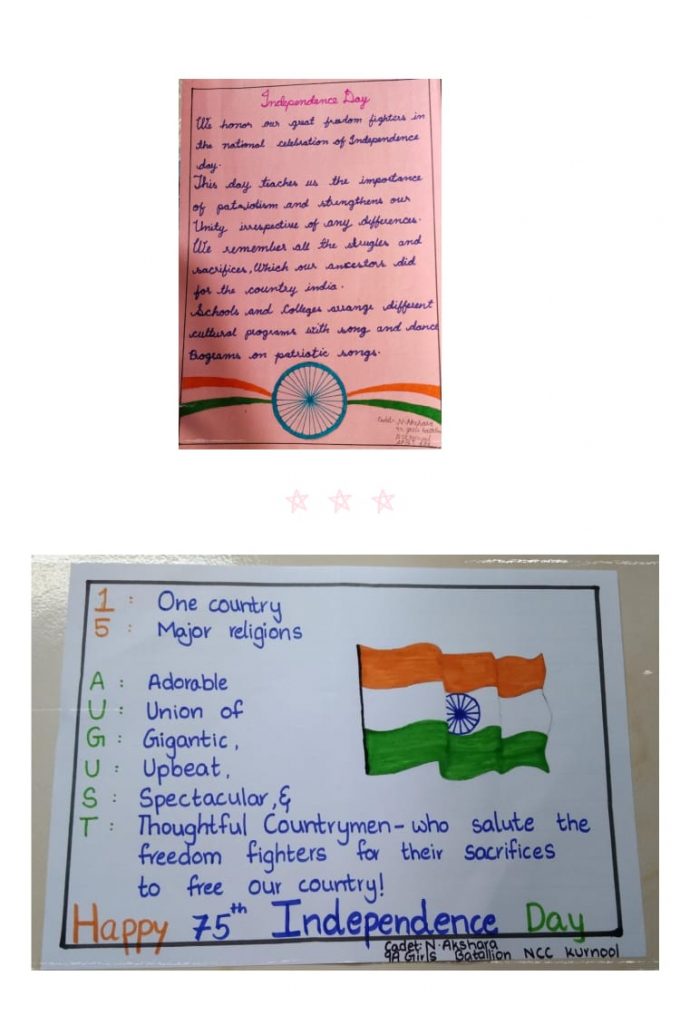 Independence Day
We honor our great freedom fighters in
the national celebration of Independence
day.
This day teaches us the importance
of patriotism and strengthens our
Unity irrespective of any differences.
We remember all the strugles and
sacrifices, Which our ancestors did
for the country india.
Schools and Colleges arrange different
cultural programs with song and dance
Programs on patriotic songs.
Cadet:- N. Akshara
1 : One country
5 : Major religions
A : Adorable
U : Union of
G : Gigantic,
U : Upbeat,
S : Spectacular, &
T : Thoughtful Countrymen - who salute the
freedom fighters for their sacrifices
to free our country!
Happy 75th Independence Day
Cadet: N. Akshara
9A Girls Batallion NCC Kurnool